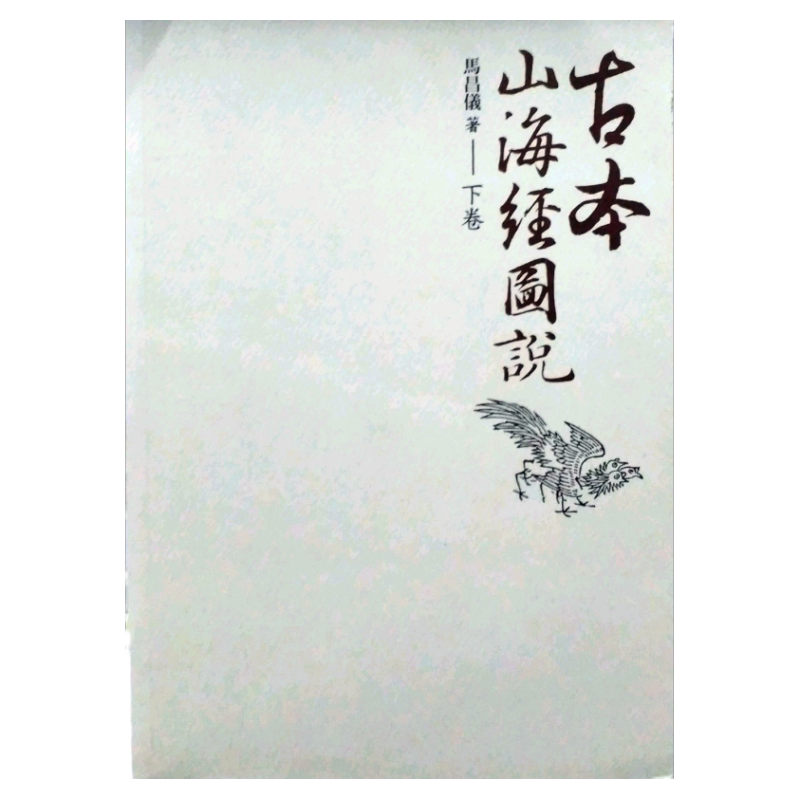 古本
山海經圖說
馬昌儀 著——下卷